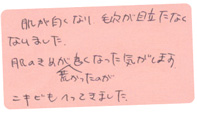 肌が白くなり、毛穴が目立たなく
なりました。
肌のきめが良くなった気がします。
荒かったのが
ニキビもへってきました。